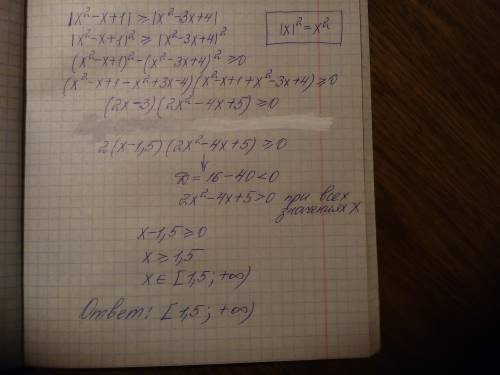 |x²-x+1| ≥ |x²-3x+4|
|x|²=x²
|x²-x+1|² ≥ |x²-3x+4|²
(x²-x+1)²-(x²-3x+4)² ≥0
(x²-x+1-x²+3x-4)(x²-x+1+x²-3x+4)≥0
(2x-3)(2x²-4x+5)≥0
2(x-1,5)(2x²-4x+5)≥0
↓
D=16-40<0
2x²-4x+5>0 при всех
значениях x
x-1,5≥0
x≥1,5
x∈[1,5; +∞)
Ответ: [1,5; +∞)